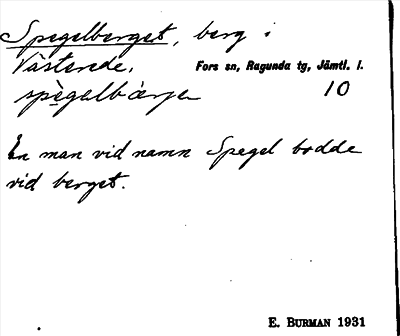 Spegelberget, berg i
Västerede.
Fors sn, Ragunda tg, Jämtl. l.
spègelbàrjen
10
En man vid namn Spegel bodde
vid berget.
E. BURMAN 1931